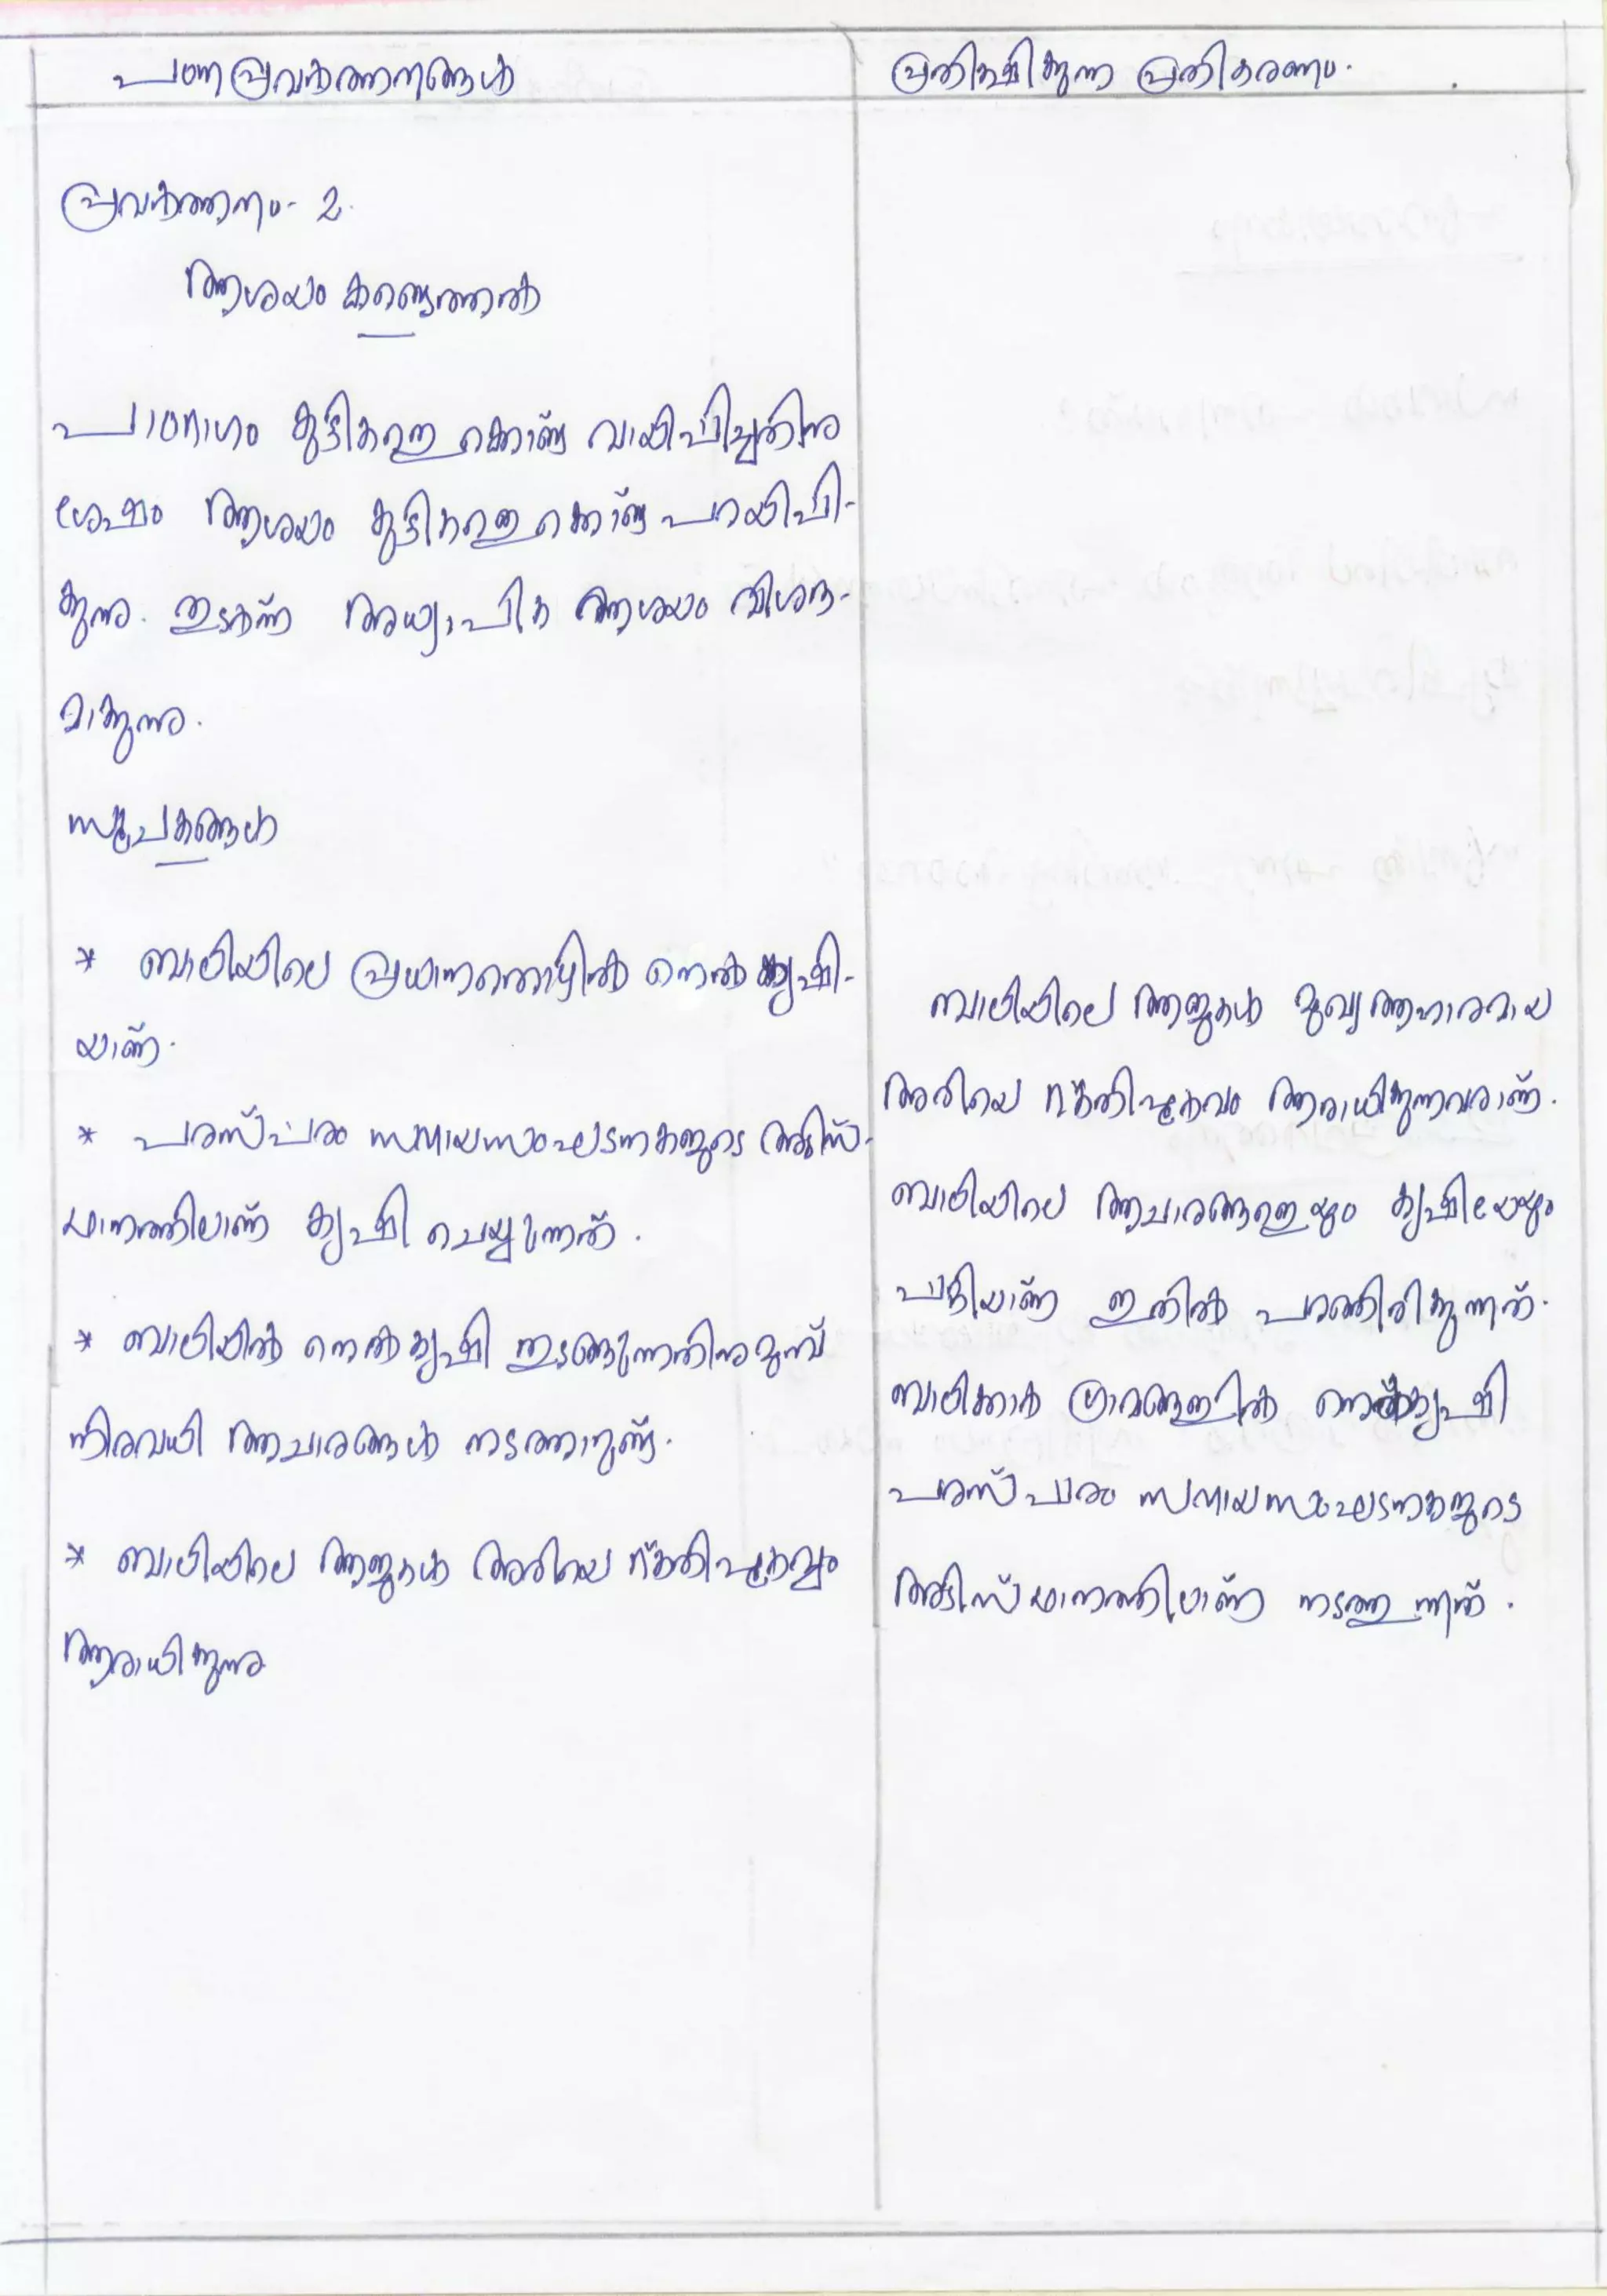 പഠനപ്രവർത്തനങ്ങൾ
പ്രതീക്ഷിക്കുന്ന പ്രതികരണം.
പ്രവർത്തനം- 2.
ആശയം കണ്ടെത്തൽ
പാഠഭാഗം കുട്ടികളെ ക്കൊണ്ട് വായിപ്പിച്ചതിനു
ശേഷം ആശയം കുട്ടികളെ ക്കൊണ്ട് പറയിപ്പി-
ക്കുന്നു. തുടർന്ന് അധ്യാപിക ആശയം വിശദ-
മാക്കുന്നു.
സൂചകങ്ങൾ
* ബാലിയിലെ പ്രധാനതൊഴിൽ നെൽകൃഷി-
യാണ്.
* പരസ്പരം സഹായസംഘടനകളുടെ അടിസ്-
ഥാനത്തിലാണ് കൃഷി ചെയ്യുന്നത്.
* ബാലിയിൽ നെൽകൃഷി തുടങ്ങുന്നതിനുമുമ്പ്
നിരവധി ആചാരങ്ങൾ നടത്താറുണ്ട്.
* ബാലിയിലെ ആളുകൾ അരിയെ ഭക്തിപൂർവ്വം
ആരാധിക്കുന്നു
ബാലിയിലെ ആളുകൾ മുഖ്യആഹാരമായ
അരിയെ ഭക്തിപൂർവം ആരാധിക്കുന്നവരാണ്.
ബാലിയിലെ ആചാരങ്ങളെയും കൃഷിയേയും
പറ്റിയാണ് ഇതിൽ പറഞ്ഞിരിക്കുന്നത്.
ബാലിക്കാർ ഗ്രാമങ്ങളിൽ നെൽകൃഷി
പരസ്പരം സഹായസംഘടനകളുടെ
അടിസ്ഥാനത്തിലാണ് നടത്തുന്നത്.